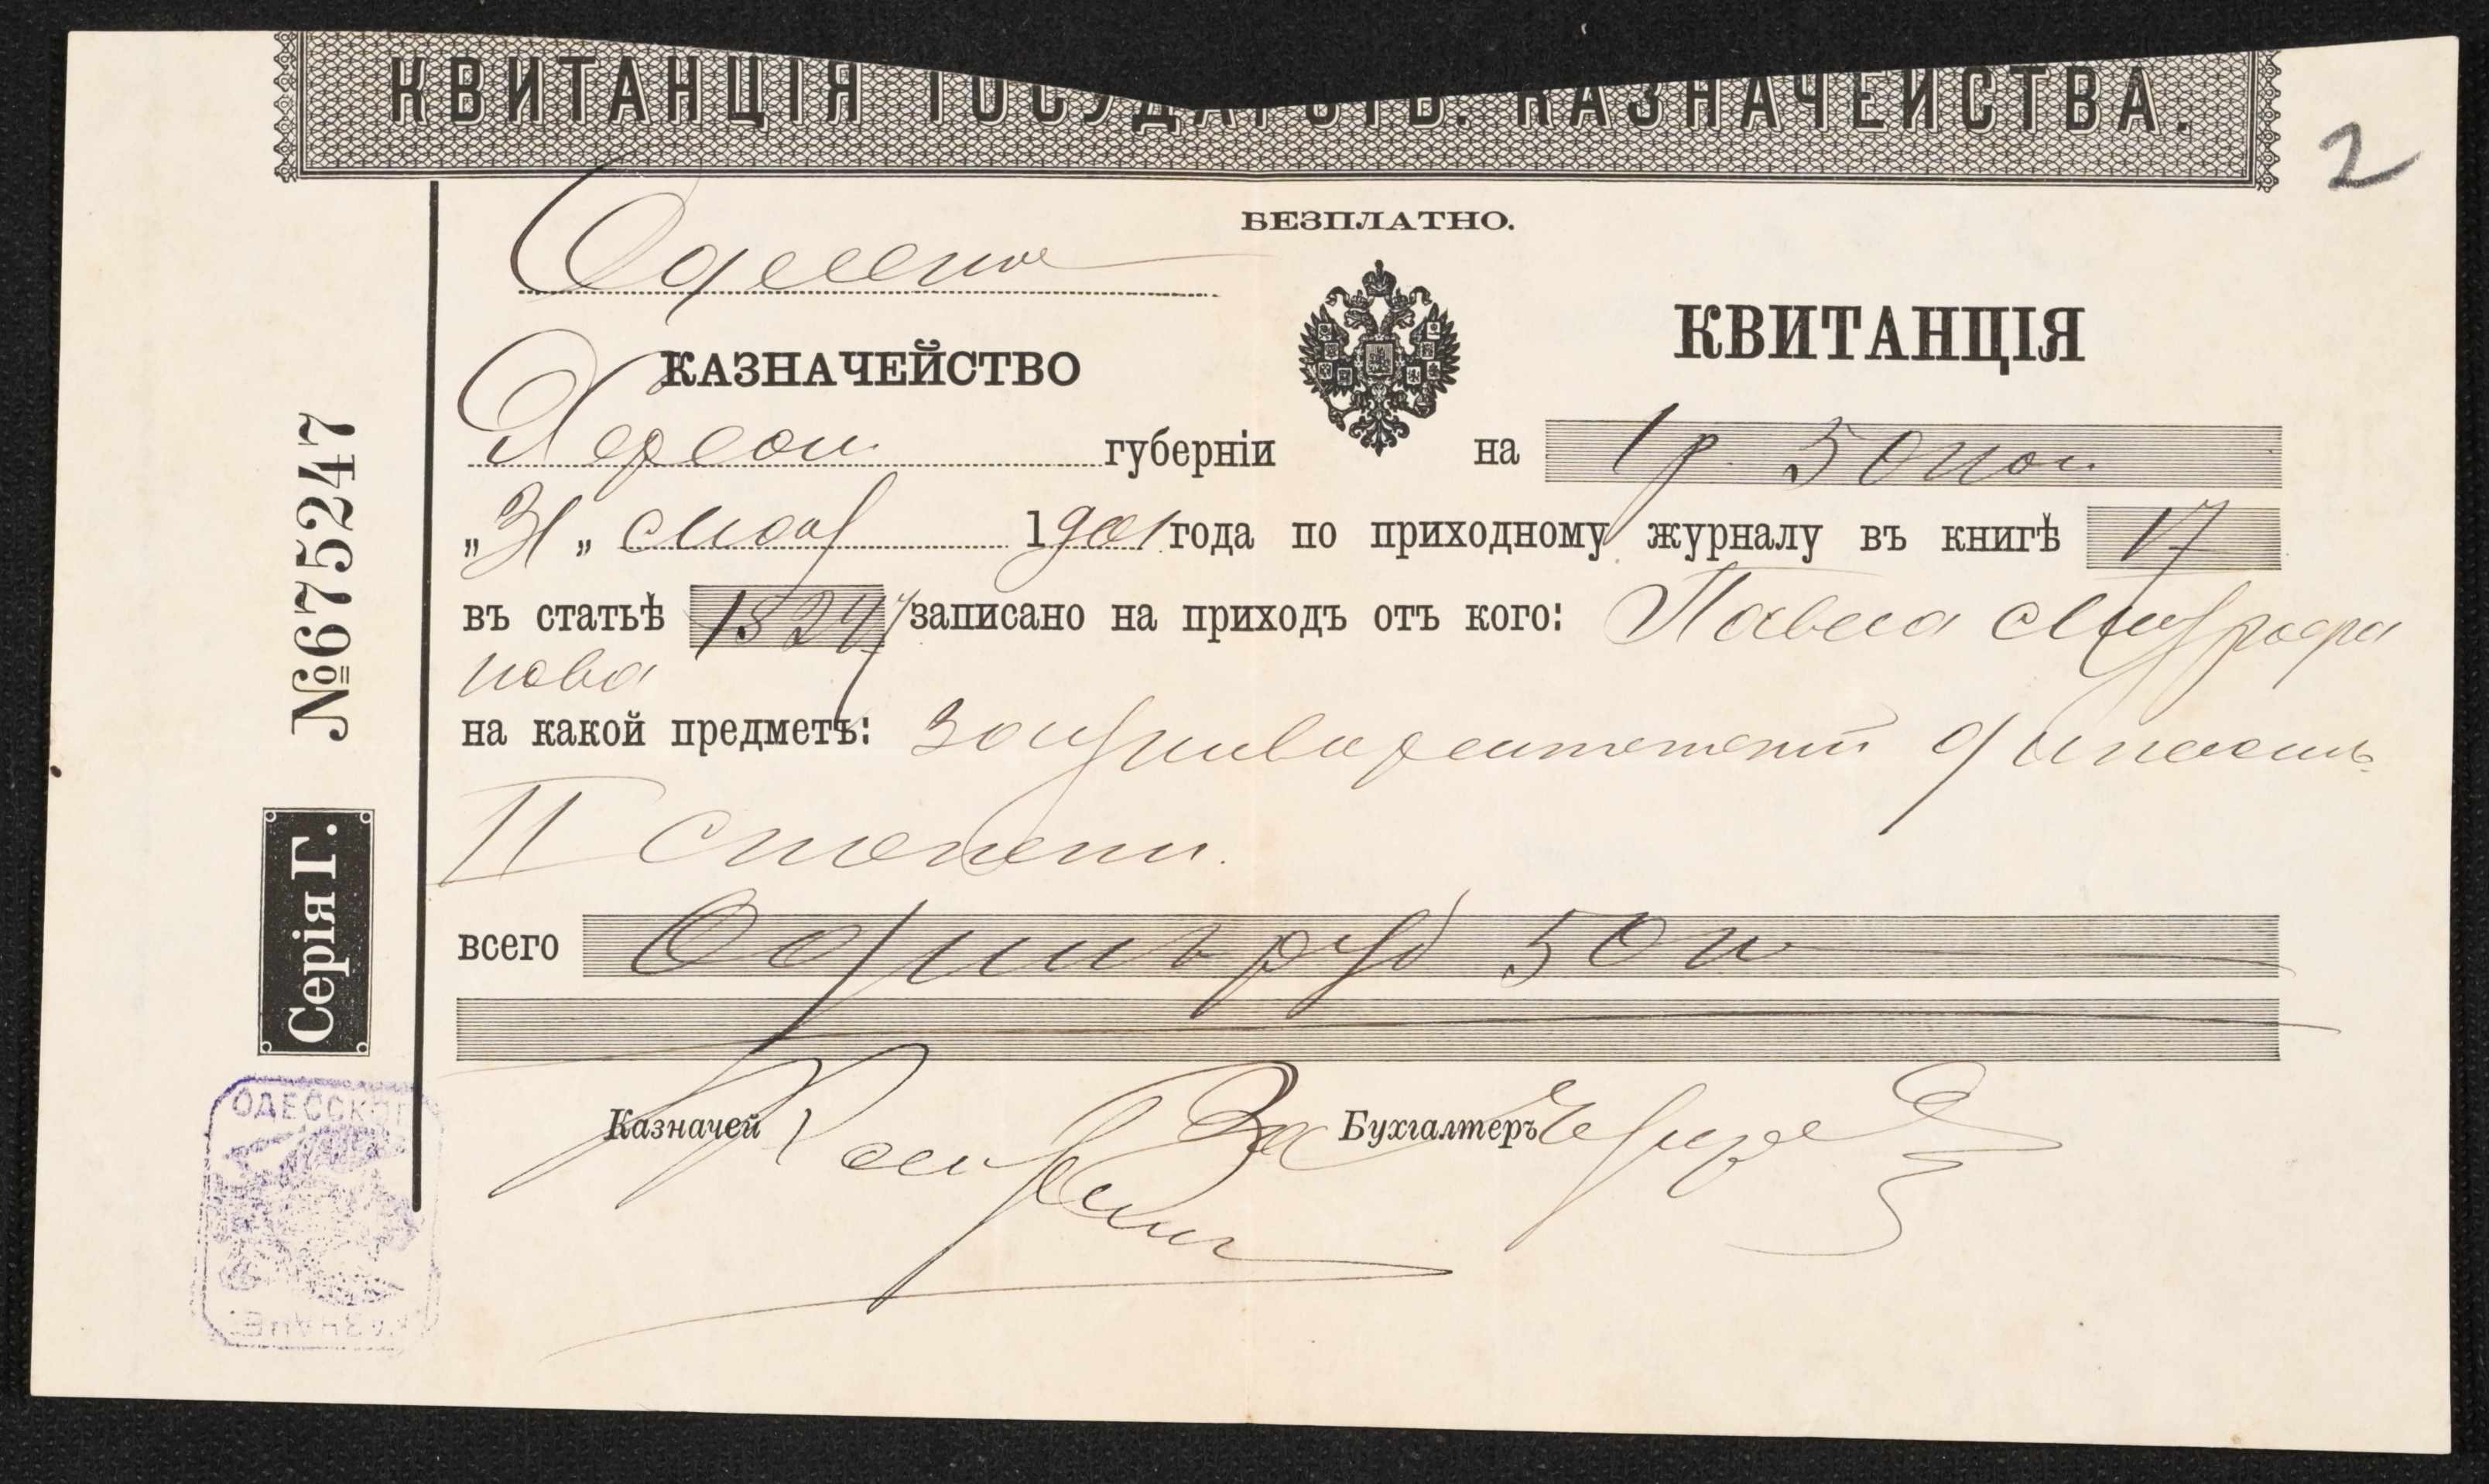 КВИТАНЦІЯ ГОСУДАРСТВ. КАЗНАЧЕЙСТВА.
2
БЕЗПЛАТНО.
Одесское
КАЗНАЧЕЙСТВО
КВИТАНЦІЯ
Херсон губерніи на 1 р. 50 коп
„31„ Мая 1901 года по приходному журналу въ книгѣ 17
въ статьѣ 15297 записано на приходъ отъ кого: Павла Митрофа
нова
на какой предметъ: за университетскій диплом
II степени.
всего Одинъ руб 50 к
Казначей За Бухгалтеръ
№675247
Серія Г.
ОДЕССКОЕ
КАЗНАЧЕ